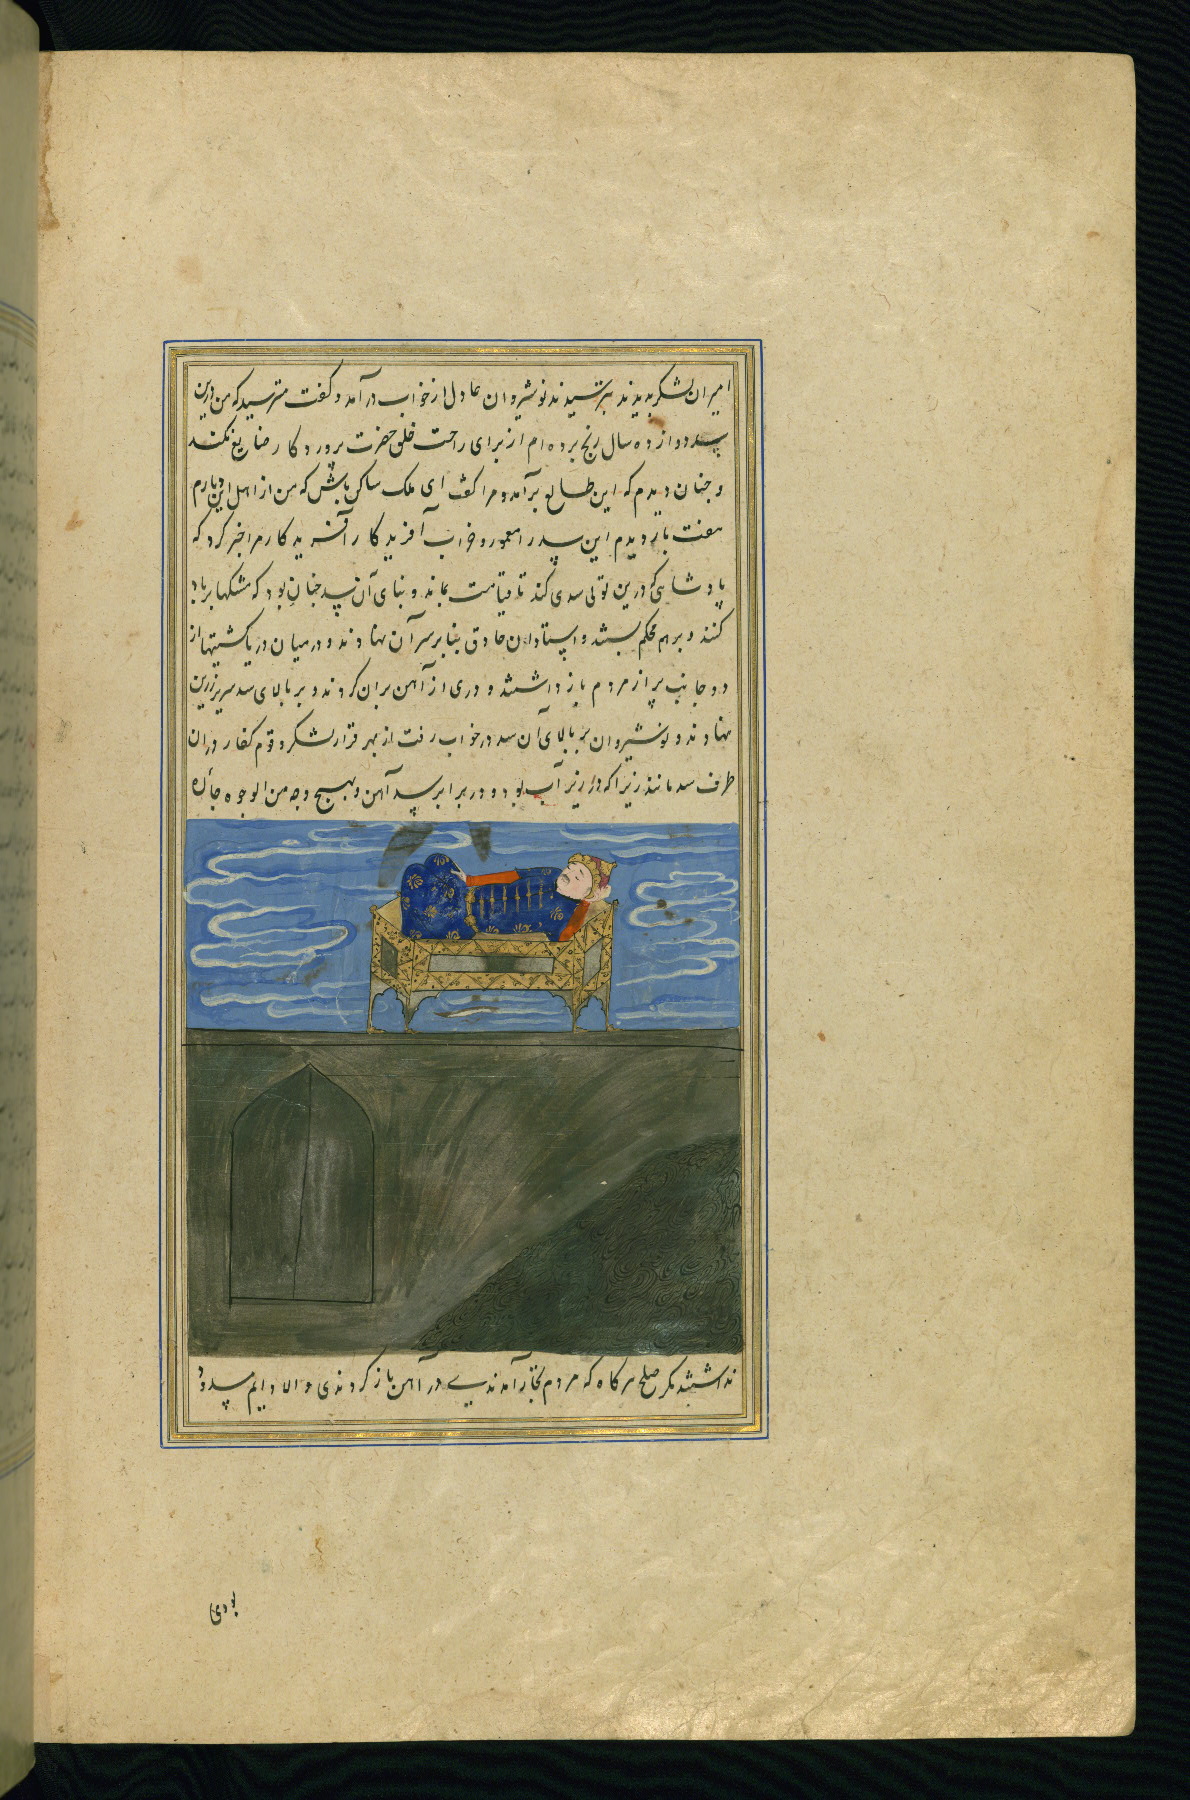 امیران لشکر بدیدند بترسیدند نوشیروان عادل از خواب درآمد و گفت مترسید که من درین
سد دوازده سال رنج برده‌ام از برای راحت خلق حضرت پروردکار ضایع نکند
و چنان دیدم که این طالع برآمد و مرا گفت ای ملک ساکن باش که من از اهل این دیارم
هفت بار دیدم این سد را معمور و خراب آفریدکار آفریدکار مرا خبر کرد که
پادشاهی که درین تولی سدی کند تا قیامت بماند و بنای آن سد چنان بود که مشکها پر باد
کنند و برهم محکم بستند و استادان حاذق بنا بر سر آن نهادند و در میان دریا کشتیها از
دو جانب پر از مردم باز داشتند و دری از آهن بران کردند و بر بالای سد سریر زرین
نهادند و نوشیروان بر بالای آن سد در خواب رفت از بهر قرار لشکر و قوم کفار دران
طرف سد ماندند زیرا که در زیر آب بود و در برابر سد آهن و بهیچ وجه من الوجوه چاره
نداشتند مکر صلح هرکاه که مردم تجار آمدندی در آهن باز کردندی والا دایم مسدود
بودی